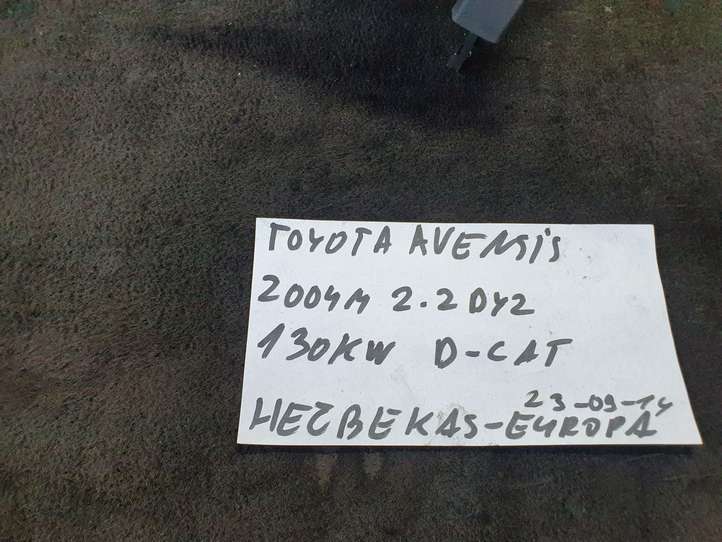 TOYOTA AVENSIS
2004M 2.2 DYZ
130KW D-CAT
23-09-14
HEZBEKAS-EUROPA